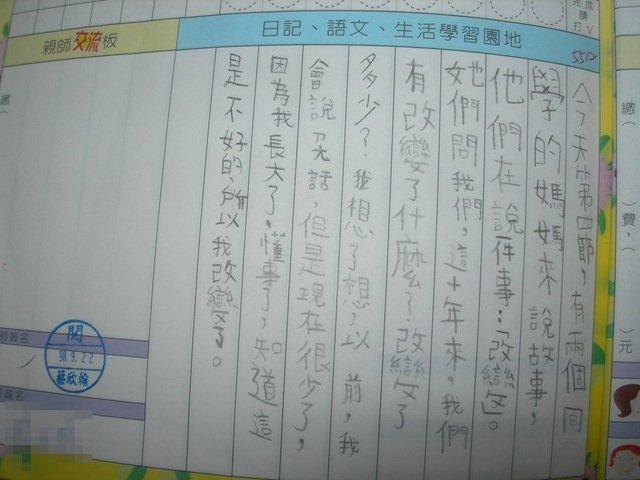 親師交流板
日記、語文、生活學習園地
成
請打V
今天第四節,有兩個同
學的媽媽來說故事,
他們在說一件事:「改變」。
她們問我們,這十年來,我們
有改變了什麼?改變了
多少?我想了想,以前,我
會說話,但是現在很少了,
因為我長大了,懂事了,知道這
是不好的,所以我改變了。
繳( )費,( )元
繳
師簽名
閱
98.9.22
蔡欣翰
簽名